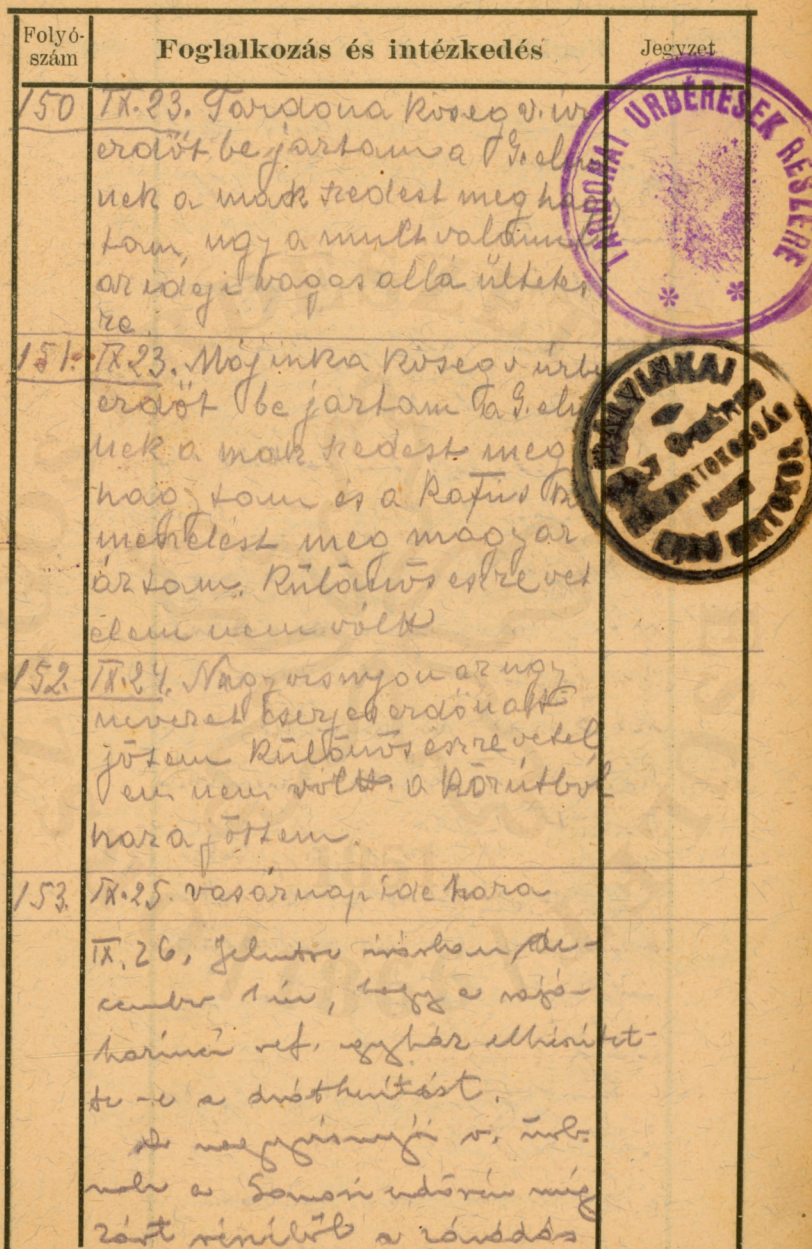 Folyó-
szám
Foglalkozás és intézkedés
Jegyzet
150 IX.23. Tardona község v. úr
erdőt be jartam a G. eln
nek a mak szedest meg hagy
tam, ugy a mult valamint
az ideji vagas allá ültetes
re.
TARDONAI URBÉRESEK RÉSZÉRE
151. IX.23. Májinka község v úrbe
erdőt be jartam a G. eln
nek a mak szedest meg
hagytam és a
meg magyar
áztam. Különös eszre vet
elem nem vólt
MÁLYINKAI
152. IX.24. Nagyvisnyon az ugy
nevezet cserjes erdőn att
jötem Különös eszrevetel
em nem vólt a Körútból
haza jöttem.
153. IX.25. vasárnap ide haza
IX.26. Jelentse írásban de-
cember 1 én, hogy a sajó-
kazinci ref. egyház elkészítet-
te-e a drótkerítést.
A nagyvisnyói v. úrb.
nak a erdőrén még
zárt részéből a